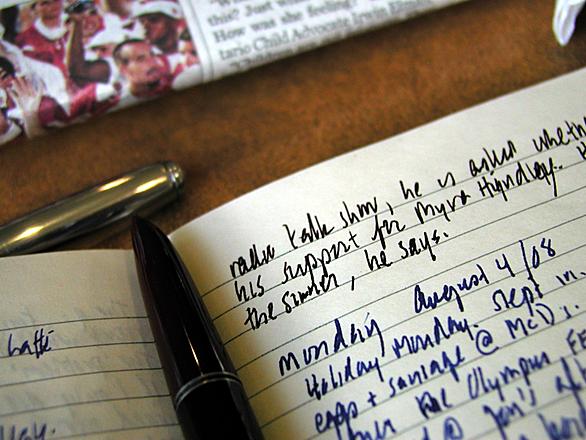 this? Just
How was she feeling?
tario Child Advocate Irwin
latté
radio talk show, he is asked wheth
his support for Myra Hindley.
the sinner, he says.
Monday August 4/08
Holiday Monday. Slept in
eggs + sausage @ McD
the Olympus
@ Jon's